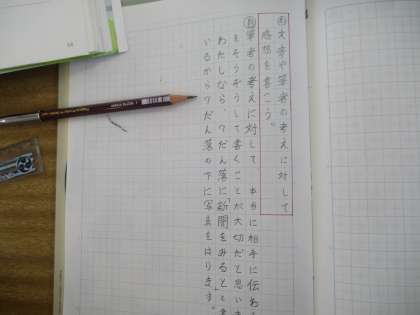 め文章や筆者の考えに対して
感想を書こう。
自筆者の考えに対して 本当に相手に伝わ
をそうぞうして書くことが大切だと思いま
わたしなら、7だん落に「新聞をみると」と書
いるから7だん落の下に写真をはります。